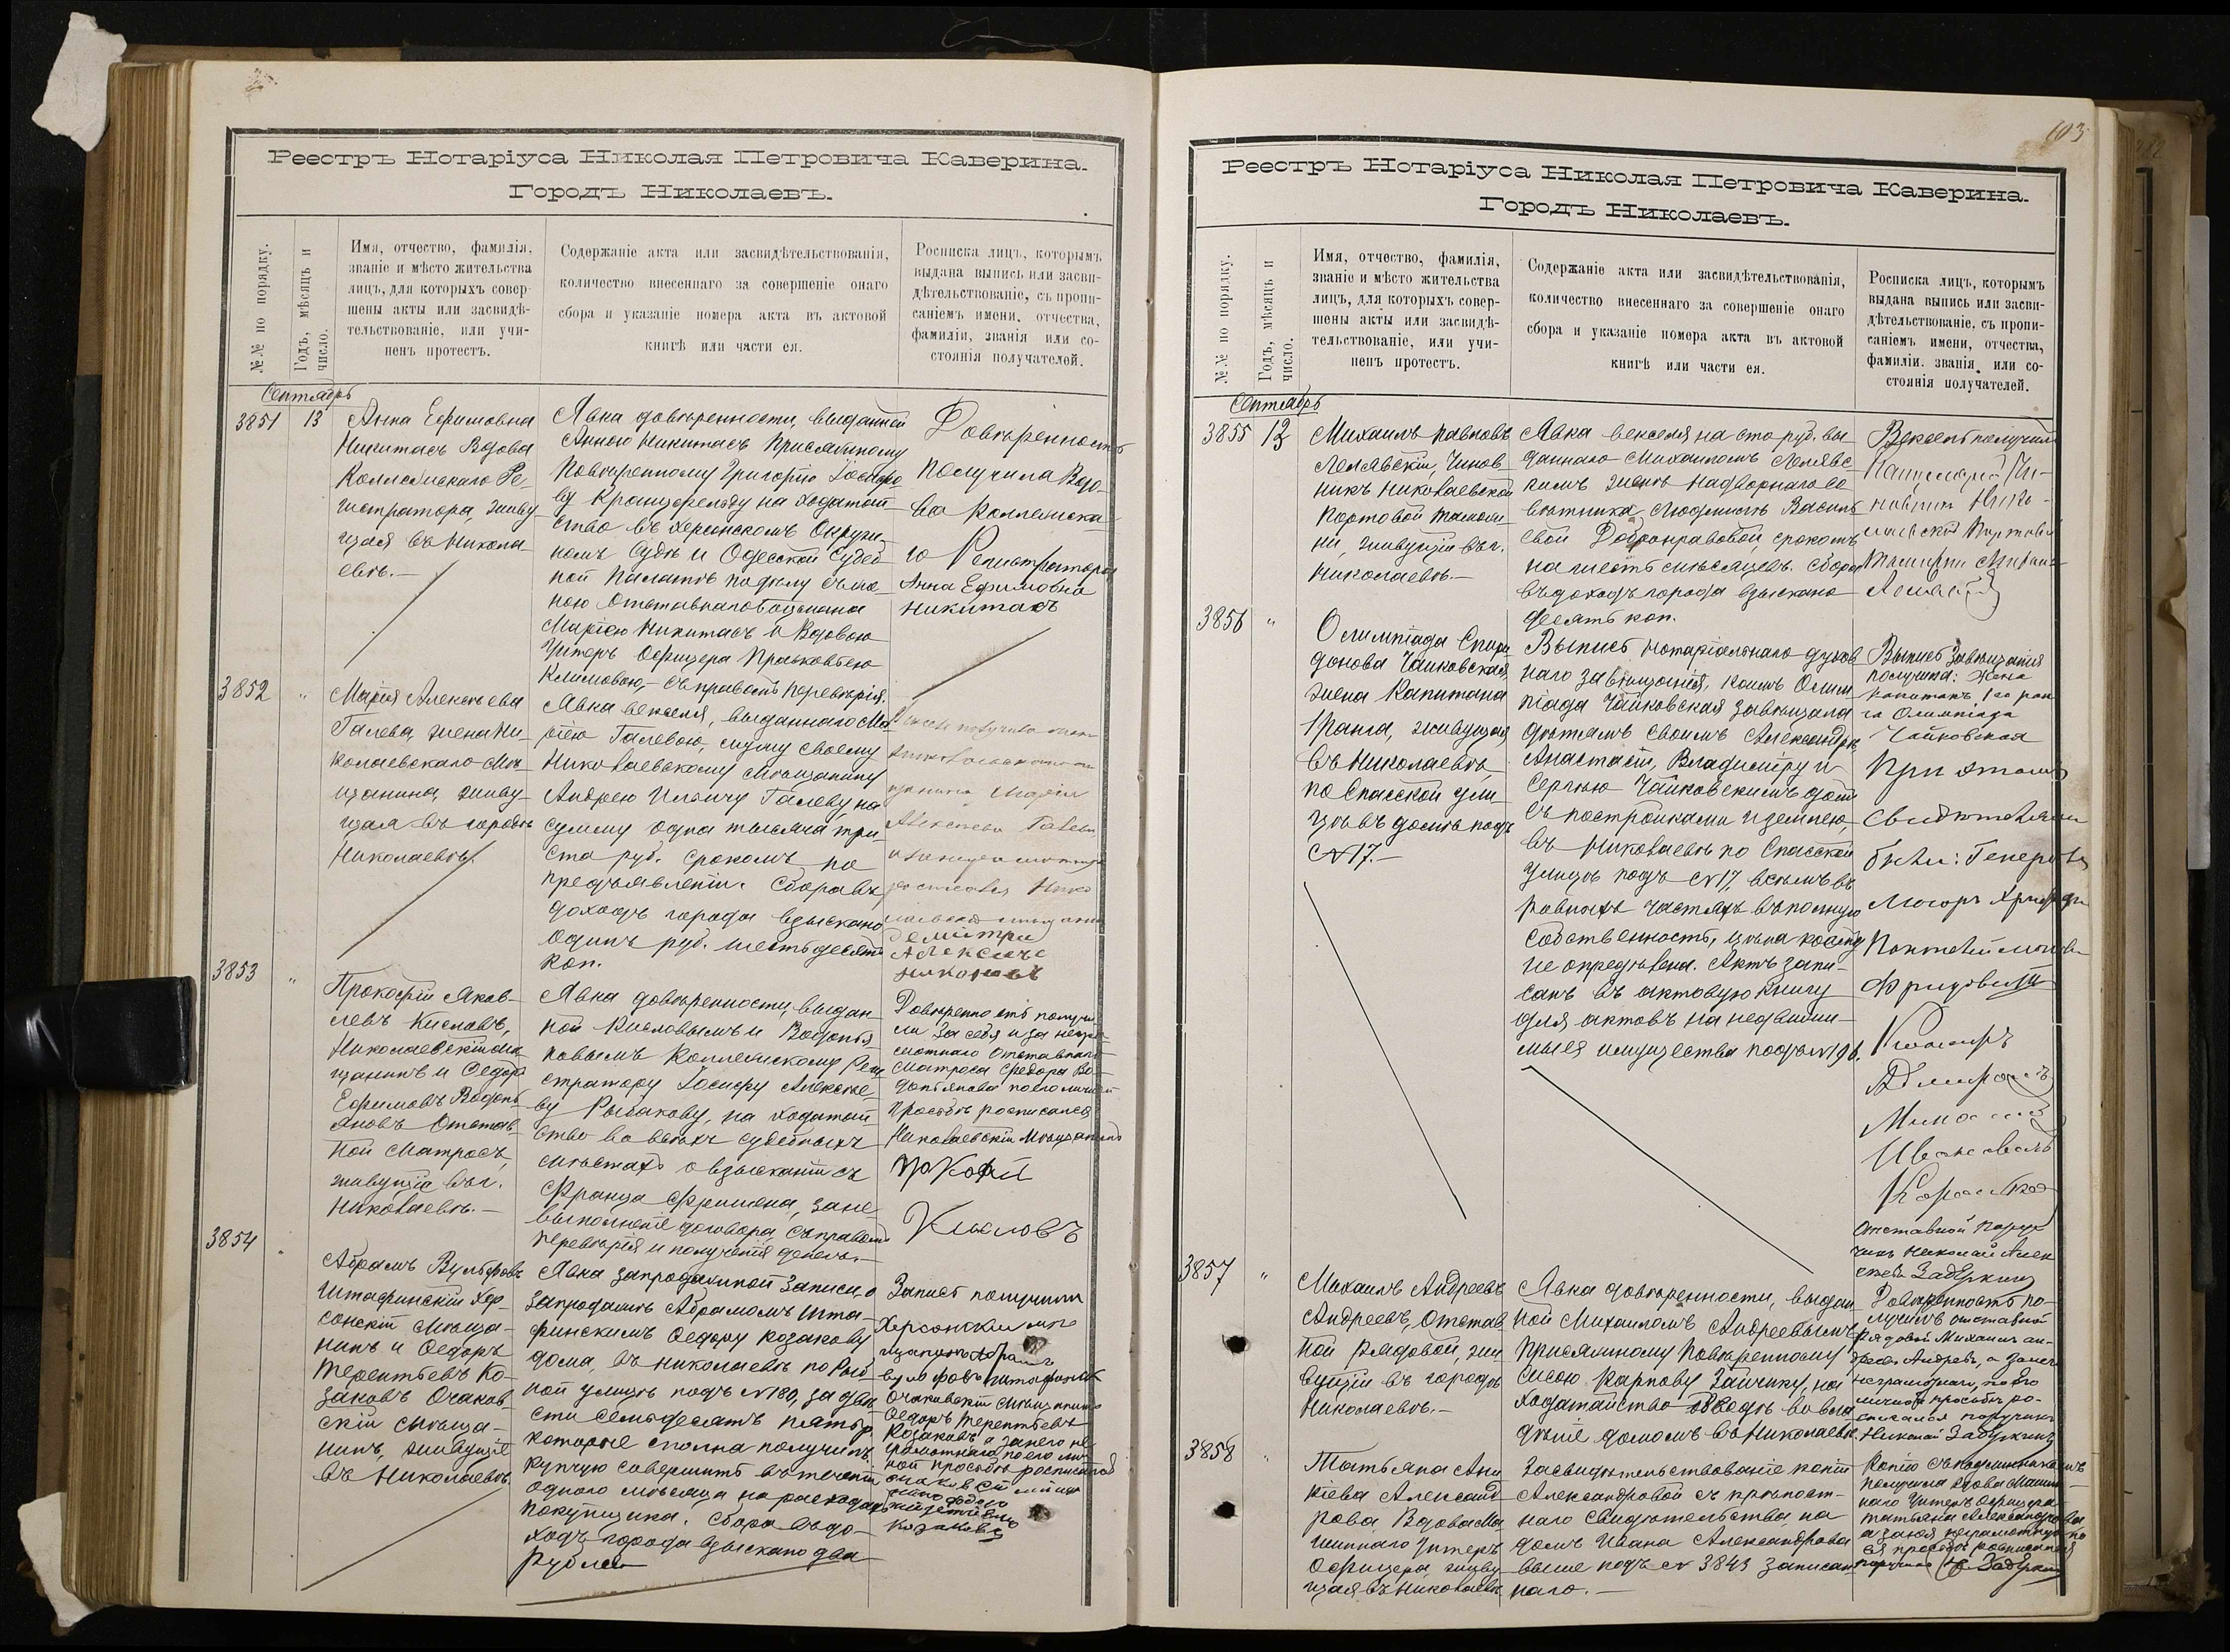 Реестръ Нотаріуса Николая Петровича Каверина.
Городъ Николаевъ.
№№ по порядку.
Годъ, мѣсяцъ и
число.
Имя, отчество, фамилія,
званіе и мѣсто жительства
лицъ, для которыхъ совер-
шены акты или засвидѣ-
тельствованіе, или учи-
ненъ протестъ.
Содержаніе акта или засвидѣтельствованія,
количество внесеннаго за совершеніе онаго
сбора и указаніе номера акта въ актовой
книгѣ или части ея.
Росписка лицъ, которымъ
выдана выпись или засви-
дѣтельствованіе, съ пропи-
саніемъ имени, отчества,
фамиліи, званія или со-
стоянія получателей.
Сентябрь
3851
13
Анна Ефимовна
Никитасъ Вдова
Коллежскаго Ре-
гистратора, живу-
щая въ Никола-
евѣ.—
Явка довѣренности, выданной
Анною Никитасъ Присяжному
Повѣренному Григорію
ву Краицфельду на ходатай-
ство въ Херсонскомъ Окруж-
номъ Судѣ и Одесской Судеб-
ной Палатѣ по дѣлу съ же-
ною Отставнаго Боцмана
Маріею Никитасъ и Вдовою
Унтеръ Офицера Прасковьею
Климовою,— съ правомъ перевѣрія.
Довѣренность
получила Вдо-
ва Коллежска-
го Регистратора
Анна Ефимовна
Никитасъ
3852
"
Марія Алексѣева
Галева, жена Ни-
колаевскаго Мѣ-
щанина, живу-
щая въ городѣ
Николаевѣ.
Явка векселя, выданнаго Ма-
ріею Галевою, мужу своему
Николаевскому Мѣщанину
Андрею Ильичу Галеву, на
сумму одна тысяча три-
ста руб. срокомъ по
предъявленіи. Сбора въ
доходъ города взыскано
одинъ руб. шестьдесятъ
коп.
получила жена
Марія
Алексѣева Галева
Николаевскій мѣщанинъ
Демитри
Алексѣевъ
Никоновъ
3853
"
Прокофій Яков-
левъ Кисловъ,
Николаевскій мѣ-
щанинъ и Ѳедоръ
Ефимовъ Водопь-
яновъ Отстав-
ной Матросъ,
живущіе въ г.
Николаевѣ.—
Явка довѣренности, выдан-
ной Кисловымъ и Водопья-
новымъ Коллежскому Реги-
стратору Іосифу Алексѣе-
ву Рыбакову, на ходатай-
ство во всѣхъ судебныхъ
мѣстахъ о взысканіи съ
Франца Фришена, за не-
выполненіе договора, съ правомъ
перевѣрія и полученія денегъ.—
Довѣренность получи-
ли За себя и за негра-
мотнаго Отставнаго
Матроса Ѳедора Во-
допьянова по его личной
просьбѣ росписался
Николаевскій Мѣщанинъ
Прокофій
Кисловъ
3854
"
Абрамъ Вульфовъ
Штафинскій Хер-
сонскій Мѣща-
нинъ и Ѳедоръ
Терентьевъ Ко-
заковъ Очаков-
скій мѣща-
нинъ, живущіе
въ Николаевѣ.
Явка запродажной Записи, о
запродажѣ Абрамомъ Шта-
финскимъ Ѳедору Козакову
дома, въ Николаевѣ по Рыб-
ной улицѣ подъ №180, за двѣ-
сти семьдесятъ пять р.
которые сполна получилъ.
купчую совершить въ теченіи
одного мѣсяца на расходахъ
покупщика. Сбора въ до-
ходъ города взыскано два
рубля.
Запись получили
Херсонскій мѣ-
щанинъ Абрамъ
Вульфовъ Штафинскій
Очаковскій мѣщанинъ
Ѳедоръ Терентьевъ
Козаковъ а за него не-
грамотнаго по его лич-
ной просьбѣ росписался
Козаковъ
103
Реестръ Нотаріуса Николая Петровича Каверина.
Городъ Николаевъ.
№№ по порядку.
Годъ, мѣсяцъ и
число.
Имя, отчество, фамилія,
званіе и мѣсто жительства
лицъ, для которыхъ совер-
шены акты или засвидѣ-
тельствованіе, или учи-
ненъ протестъ.
Содержаніе акта или засвидѣтельствованія,
количество внесеннаго за совершеніе онаго
сбора и указаніе номера акта въ актовой
книгѣ или части ея.
Росписка лицъ, которымъ
выдана выпись или засви-
дѣтельствованіе, съ пропи-
саніемъ имени, отчества,
фамиліи, званія или со-
стоянія получателей.
Сентябрь
3855
13
Михаилъ Павловъ
Лелявскій, Чинов-
никъ Николаевской
Портовой Таможни-
ни, живущій въ г.
Николаевѣ.—
Явка векселя на сто руб. вы-
даннаго Михаиломъ Лелявс-
кимъ женѣ Надворнаго Со-
вѣтника Людмилѣ Василь-
евой Добронравовой, срокомъ
на шесть мѣсяцевъ. Сбора
въ доходъ города взыскано
десять коп.
Вексель получилъ
3856
"
Олимпіада Спири-
донова Чайковская,
жена Капитана
1 ранга, живущая
въ Николаевѣ,
по Спасской ули-
цѣ въ домѣ подъ
№ 17.—
Выпись нотаріальнаго духов-
наго завѣщанія, коимъ Олим-
піада Чайковская завѣщала
дѣтямъ своимъ Александрѣ,
Анастасіи, Владиміру и
Сергѣю Чайковскимъ домъ
съ постройками и землею,
въ Николаевѣ по Спасской
улицѣ подъ №17, всѣмъ въ
равныхъ частяхъ въ полную
собственность, цѣна коему
не опредѣлена. Актъ запи-
санъ въ актовую книгу
для актовъ на недвижи-
мыя имущества подъ №196.
Выпись Завѣщанія
получила: жена
капитанъ 1го ран-
га Олимпіада
Чайковская
При этомъ
свидѣтелями
были: Генералъ
Маіоръ
Отставной Поруч-
чикъ Николай Алек-
сѣевъ Задёркинъ
3857
"
Михаилъ Андреевъ
Андреевъ, Отстав-
ной Рядовой, жи-
вущій въ городѣ
Николаевѣ.—
Явка довѣренности, выдан-
ной Михаиломъ Андреевымъ
Присяжному Повѣренному
Сысою Карпову Зайчику, на
ходатайство о вводѣ во вла-
дѣніе домомъ въ Николаевѣ.
Довѣренность по-
лучилъ отставной
рядовой Михаилъ Ан-
дреевъ Андреевъ, а за него
неграмотнаго, по его
личной просьбѣ ро-
списался поручикъ
Николай Задёркинъ
3858
"
Татьяна Ани-
кіева Александ-
рова Вдова Ма-
шиннаго Унтеръ
Офицера, живу-
щая въ Николаевѣ
Засвидѣтельствованіе копіи
Александровой съ крѣпост-
наго свидѣтельства на
домъ Ивана Александрова
выше подъ № 3843 записан-
наго.—
Копію съ подлинникомъ
получила вдова Машин-
наго Унтеръ Офицера
Татьяна Александрова
а за нея неграмотную по
ея просьбѣ росписался
поручикъ Н. Задёркинъ